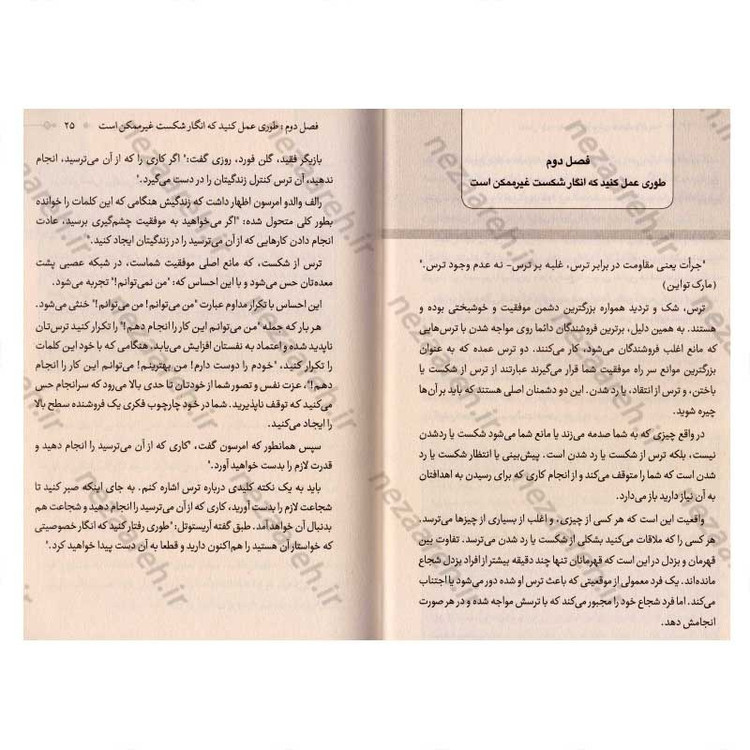 فصل دوم
طوری عمل کنید که انگار شکست غیرممکن است
"جرأت یعنی مقاومت در برابر ترس، غلبه بر ترس- نه عدم وجود ترس."
(مارک تواین)
ترس، شک و تردید همواره بزرگترین دشمن موفقیت و خوشبختی بوده و
هستند. به همین دلیل، برترین فروشندگان دائما روی مواجه شدن با ترس‌هایی
که مانع اغلب فروشندگان می‌شود، کار می‌کنند. دو ترس عمده که به عنوان
بزرگترین موانع سر راه موفقیت شما قرار می‌گیرند عبارتند از ترس از شکست یا
باختن، و ترس از انتقاد، یا رد شدن. این دو دشمنان اصلی هستند که باید بر آن‌ها
چیره شوید.
در واقع چیزی که به شما صدمه می‌زند یا مانع شما می‌شود شکست یا ردشدن
نیست، بلکه ترس از شکست یا رد شدن است. پیش‌بینی یا انتظار شکست یا رد
شدن است که شما را متوقف می‌کند و از انجام کاری که برای رسیدن به اهدافتان
به آن نیاز دارید باز می‌دارد.
واقعیت این است که هر کسی از چیزی، و اغلب از بسیاری از چیزها می‌ترسد.
هر کسی را که ملاقات می‌کنید بشکلی از شکست یا رد شدن می‌ترسد. تفاوت بین
قهرمان و بزدل در این است که قهرمانان تنها چند دقیقه بیشتر از افراد بزدل شجاع
مانده‌اند. یک فرد معمولی از موقعیتی که باعث ترس او شده دور می‌شود یا اجتناب
می‌کند. اما فرد شجاع خود را مجبور می‌کند که با ترسش مواجه شده و در هر صورت
انجامش دهد.
فصل دوم : طوری عمل کنید که انگار شکست غیرممکن است ۲۵
بازیگر فقید، گلن فورد، روزی گفت:" اگر کاری را که از آن می‌ترسید، انجام
ندهید، آن ترس کنترل زندگیتان را در دست می‌گیرد."
رالف والدو امرسون اظهار داشت که زندگیش هنگامی که این کلمات را خوانده
بطور کلی متحول شده: "اگر می‌خواهید به موفقیت چشم‌گیری برسید، عادت
انجام دادن کارهایی که از آن می‌ترسید را در زندگیتان ایجاد کنید."
ترس از شکست، که مانع اصلی موفقیت شماست، در شبکه عصبی پشت
معده‌تان حس می‌شود و با این احساس که: "من نمی‌توانم!" تجربه می‌شود.
این احساس با تکرار مداوم عبارت "من می‌توانم! من می‌توانم!" خنثی می‌شود.
هر بار که جمله "من می‌توانم این کار را انجام دهم!" را تکرار کنید ترس‌تان
ناپدید شده و اعتماد به نفستان افزایش می‌یابد. هنگامی که با خود این کلمات
را تکرار کنید، "خودم را دوست دارم! من بهترینم! می‌توانم این کار را انجام
دهم!"، عزت نفس و تصور شما از خودتان تا حدی بالا می‌رود که سرانجام حس
می‌کنید که توقف ناپذیرید. شما در خود چارچوب فکری یک فروشنده سطح بالا
را ایجاد می‌کنید.
سپس همانطور که امرسون گفت، "کاری که از آن می‌ترسید را انجام دهید و
قدرت لازم را بدست خواهید آورد."
باید به یک نکته کلیدی درباره ترس اشاره کنم. به جای اینکه صبر کنید تا
شجاعت لازم را بدست آورید، کاری که از آن می‌ترسید را انجام دهید و شجاعت هم
بدنبال آن خواهد آمد. طبق گفته آریستوتل: "طوری رفتار کنید که انگار خصوصیتی
که خواستار آن هستید را هم‌اکنون دارید و قطعا به آن دست پیدا خواهید کرد."
nezareh.ir